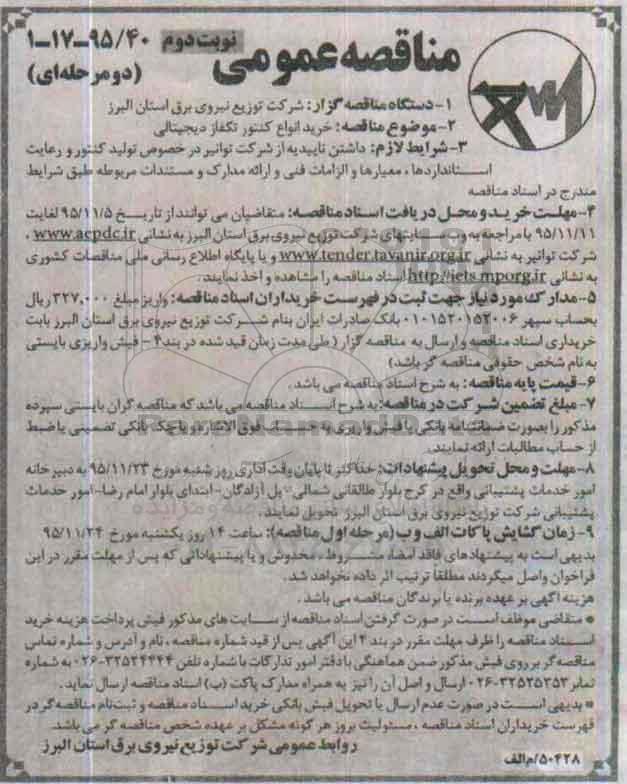 مناقصه عمومی نوبت دوم ۹۵/۴۰-۱۷-۱
(دو مرحله‌ای)
۱-دستگاه مناقصه گزار: شرکت توزیع نیروی برق استان البرز
۲-موضوع مناقصه: خرید انواع کنتور تکفاز دیجیتالی
۳-شرایط لازم: داشتن تاییدیه از شرکت توانیر در خصوص تولید کنتور و رعایت
استانداردها، معیارها و الزامات فنی و ارائه مدارک و مستندات مربوطه طبق شرایط
مندرج در اسناد مناقصه
۴-مهلت خرید و محل دریافت اسناد مناقصه: متقاضیان می توانند از تاریخ ۹۵/۱۱/۵ لغایت
۹۵/۱۱/۱۱ با مراجعه به وب سایتهای شرکت توزیع نیروی برق استان البرز به نشانی www.aepdc.ir ،
شرکت توانیر به نشانی www.tender.tavanir.org.ir و یا پایگاه اطلاع رسانی ملی مناقصات کشوری
به نشانی http://iets.mporg.ir اسناد مناقصه را مشاهده و اخذ نمایند.
۵-مدارک مورد نیاز جهت ثبت در فهرست خریداران اسناد مناقصه: واریز مبلغ ۳۲۷,۰۰۰ ریال
بحساب سپهر ۰۱۰۱۵۲۰۱۵۲۰۰۶ بانک صادرات ایران بنام شرکت توزیع نیروی برق استان البرز بابت
خریداری اسناد مناقصه و ارسال به مناقصه گزار (طی مدت زمان قید شده در بند ۴ - فیش واریزی بایستی
به نام شخص حقوقی مناقصه گر باشد)
۶-قیمت پایه مناقصه: به شرح اسناد مناقصه می باشد.
۷-مبلغ تضمین شرکت در مناقصه: به شرح اسناد مناقصه می باشد که مناقصه گران بایستی سپرده
مذکور را بصورت ضمانتنامه بانکی یا فیش واریزی به حساب فوق الاشاره و یا چک بانکی تضمینی یا ضبط
از حساب مطالبات ارائه نمایند.
۸-مهلت و محل تحویل پیشنهادات: حداکثر تا پایان وقت اداری روز شنبه مورخ ۹۵/۱۱/۲۳ به دبیرخانه
امور خدمات پشتیبانی واقع در کرج بلوار طالقانی شمالی - پل آزادگان-ابتدای بلوار امام رضا-امور خدمات
پشتیبانی شرکت توزیع نیروی برق استان البرز تحویل نمایند
۹-زمان گشایش پاکات الف و ب (مرحله اول مناقصه): ساعت ۱۴ روز یکشنبه مورخ ۹۵/۱۱/۲۴
بدیهی است به پیشنهادهای فاقد امضاء، مشروط، مخدوش و یا پیشنهاداتی که پس از مهلت مقرر در این
فراخوان واصل میگردند مطلقا ترتیب اثر داده نخواهد شد.
هزینه آگهی بر عهده برنده یا برندگان مناقصه می باشد.
* متقاضی موظف است در صورت گرفتن اسناد مناقصه از سایت های مذکور فیش پرداخت هزینه خرید
اسناد مناقصه را ظرف مهلت مقرر در بند ۴ این آگهی پس از قید شماره مناقصه، نام و آدرس و شماره تماس
مناقصه گر بر روی فیش مذکور ضمن هماهنگی با دفتر امور تدارکات با شماره تلفن ۳۲۵۲۴۴۴۴-۰۲۶ به شماره
نمابر ۳۲۵۲۵۳۵۳-۰۲۶ ارسال و اصل آن را نیز به همراه مدارک پاکت (ب) اسناد مناقصه ارسال نماید.
* بدیهی است در صورت عدم ارسال یا تحویل فیش بانکی خرید اسناد مناقصه و ثبت نام مناقصه گر در
فهرست خریداران اسناد مناقصه، مسئولیت بروز هر گونه مشکل بر عهده شخص مناقصه گر می باشد.
روابط عمومی شرکت توزیع نیروی برق استان البرز
۵۰۴۲۸/م الف